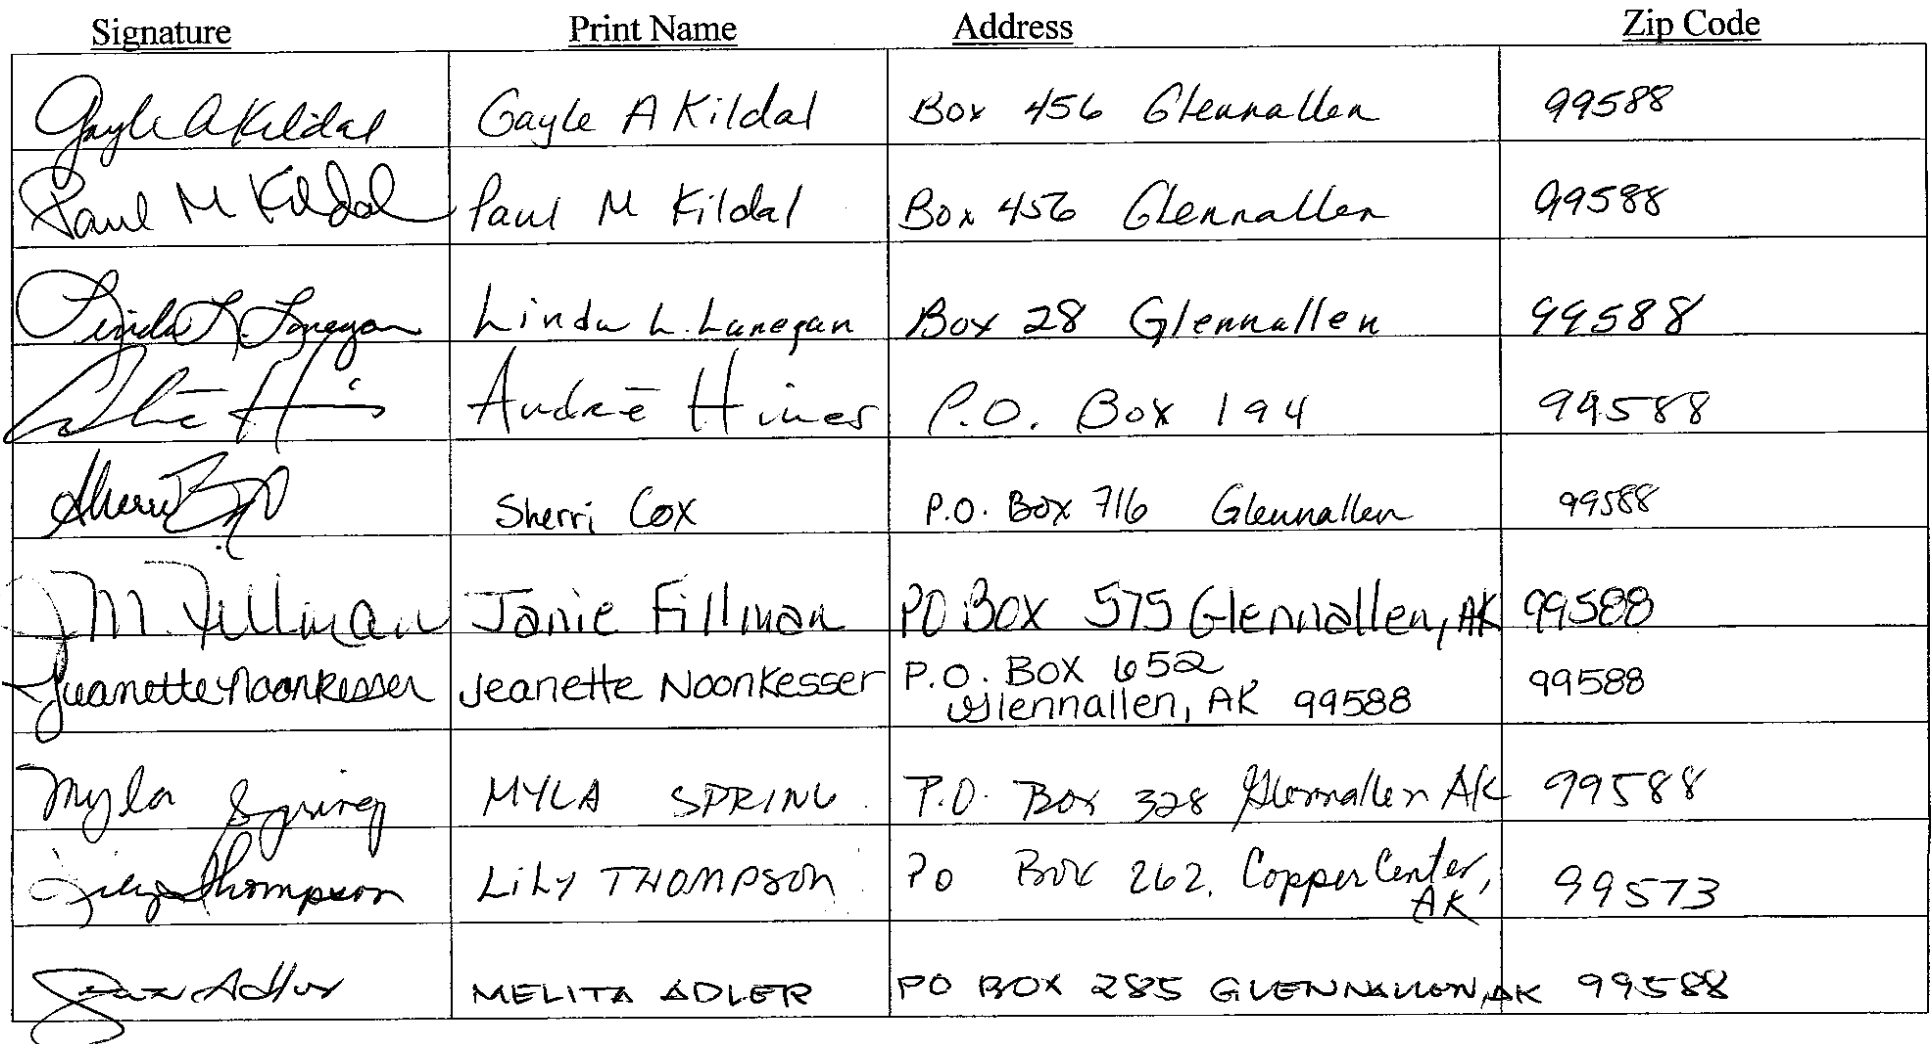 Signature Print Name Address Zip Code
Gayle A Kildal Gayle A Kildal Box 456 Glennallen 99588
Paul M Kildal Paul M Kildal Box 456 Glennallen 99588
Linda L. Lanegan Linda L. Lanegan Box 28 Glennallen 99588
Andrē Hines P.O. Box 194 99588
Sherri Sherri Cox P.O. Box 716 Glennallen 99588
J M. Fillman Janie Fillman PO Box 575 Glennallen, AK 99588
Jeanette Noonkesser Jeanette Noonkesser P.O. BOX 652 99588
Glennallen, AK 99588
Myla Spring MYLA SPRING P.O. Box 328 Glennallen AK 99588
Lily Thompson LiLY THOMPSON PO Box 262, Copper Center, 99573
AK
Adler MELITA ADLER PO BOX 285 GLENNALLEN, AK 99588